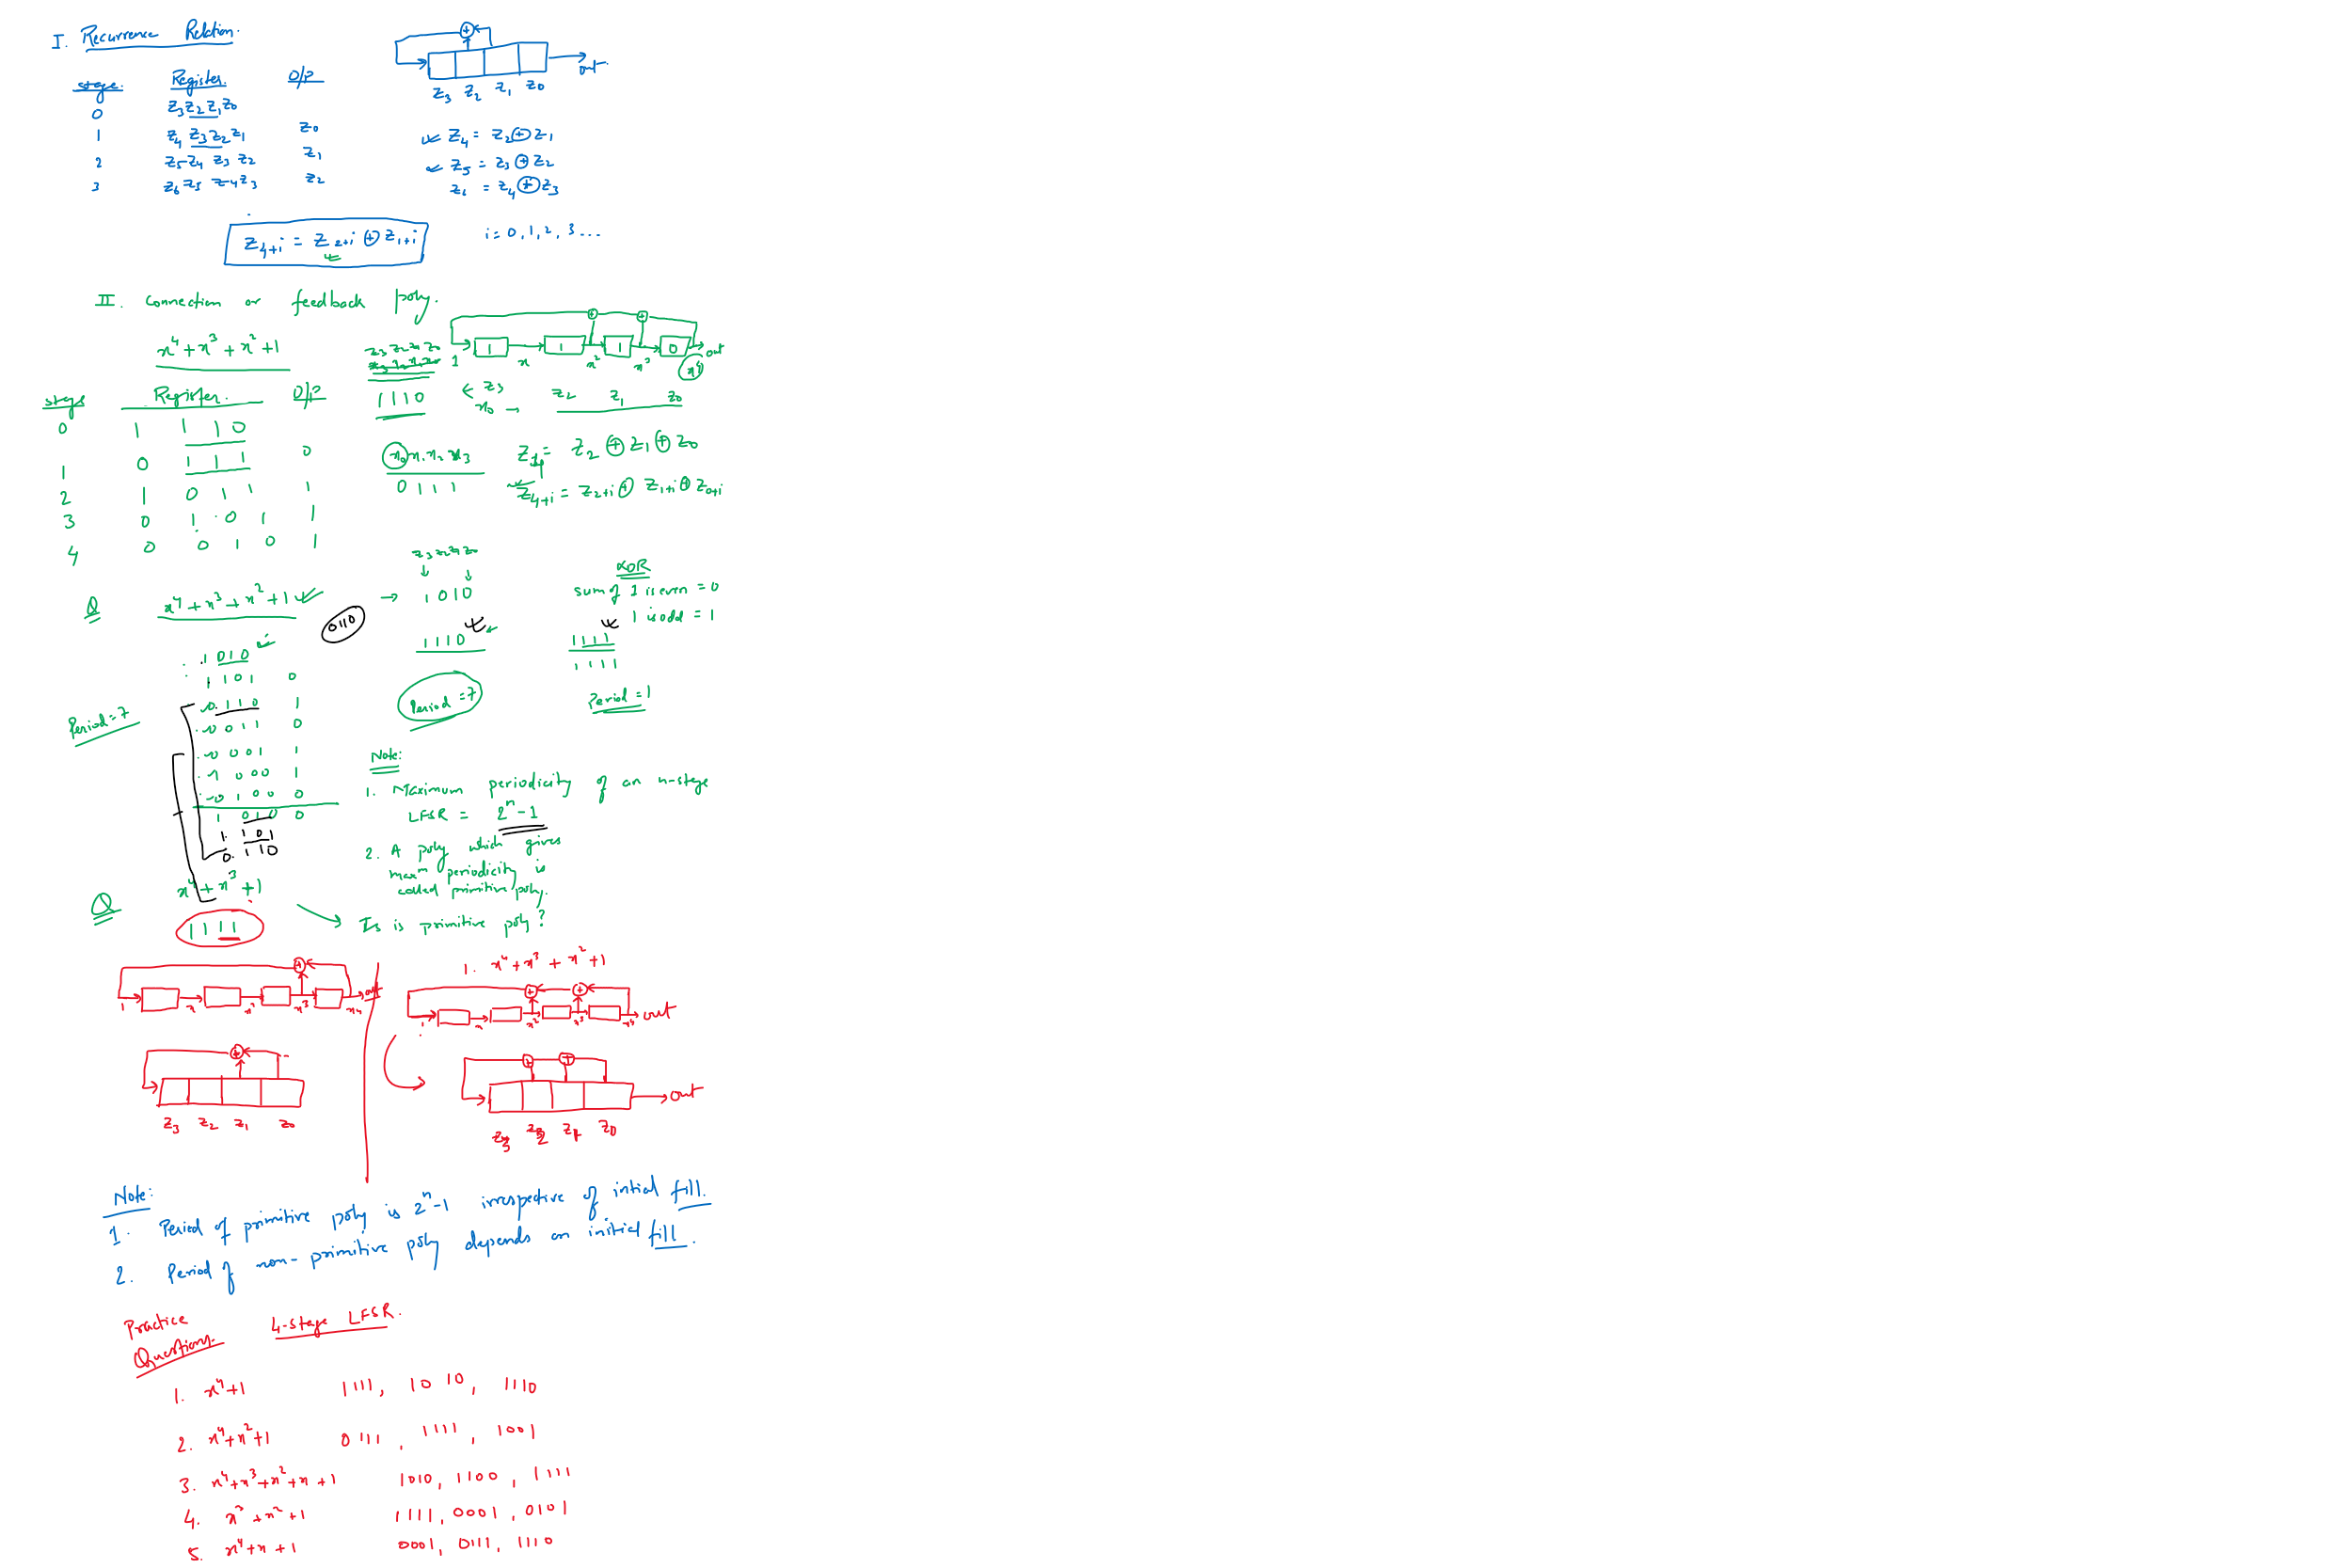 I. Recurrence Relation.
stage. Register. O/P
0 z3z2z1z0
1 z4 z3z2z1 z0
2 z5z4 z3 z2 z1
3 z6 z5 z4z3 z2
⊕
out.
z3 z2 z1 z0
z4 = z2⊕z1
z5 = z3⊕z2
z6 = z4⊕z3
z4+i = z2+i ⊕ z1+i i = 0, 1, 2, 3 ...
II. Connection or feedback poly.
x⁴+x³+x²+1
z3 z2 z1 z0
1 1 1 0 out
1 x x² x³ x⁴
stage Register. O/P
0 1 1 1 0
1 0 1 1 1 0
2 1 0 1 1 1
3 0 1 0 1 1
4 0 0 1 0 1
1110
← z3 z2 z1 z0
x0 →
x0 x1 x2 x3
0111
z4 = z2 ⊕ z1 ⊕ z0
z4+i = z2+i ⊕ z1+i ⊕ z0+i
Q x⁴+x³+x²+1
0110
z3 z2 z1 z0
→ 1010
1110
Period = 7
XOR
sum of 1 is even = 0
1 is odd = 1
1111
1111
Period = 1
Period = 7
1010
1101 0
0110 1
0011 0
0001 1
1000 1
0100 0
1010 0
1101
0110
Note:
1. Maximum periodicity of an n-stage
LFSR = 2ⁿ-1
2. A poly which gives
maxᵐ periodicity is
called primitive poly.
Q x⁴+x³+1
1111
Is is primitive poly?
out
1 x x² x³ x4
z3 z2 z1 z0
1. x⁴+x³+x²+1
out
1 x x² x³ x⁴
out
z3 z2 z1 z0
Note:
1. Period of primitive poly is 2ⁿ-1 irrespective of intial fill.
2. Period of non-primitive poly depends on initial fill.
Practice
Questions.
4-stage LFSR.
1. x⁴+1 1111, 1010, 1110
2. x⁴+x²+1 0111, 1111, 1001
3. x⁴+x³+x²+x+1 1010, 1100, 1111
4. x³+x²+1 1111, 0001, 0101
5. x⁴+x+1 0001, 0111, 1110